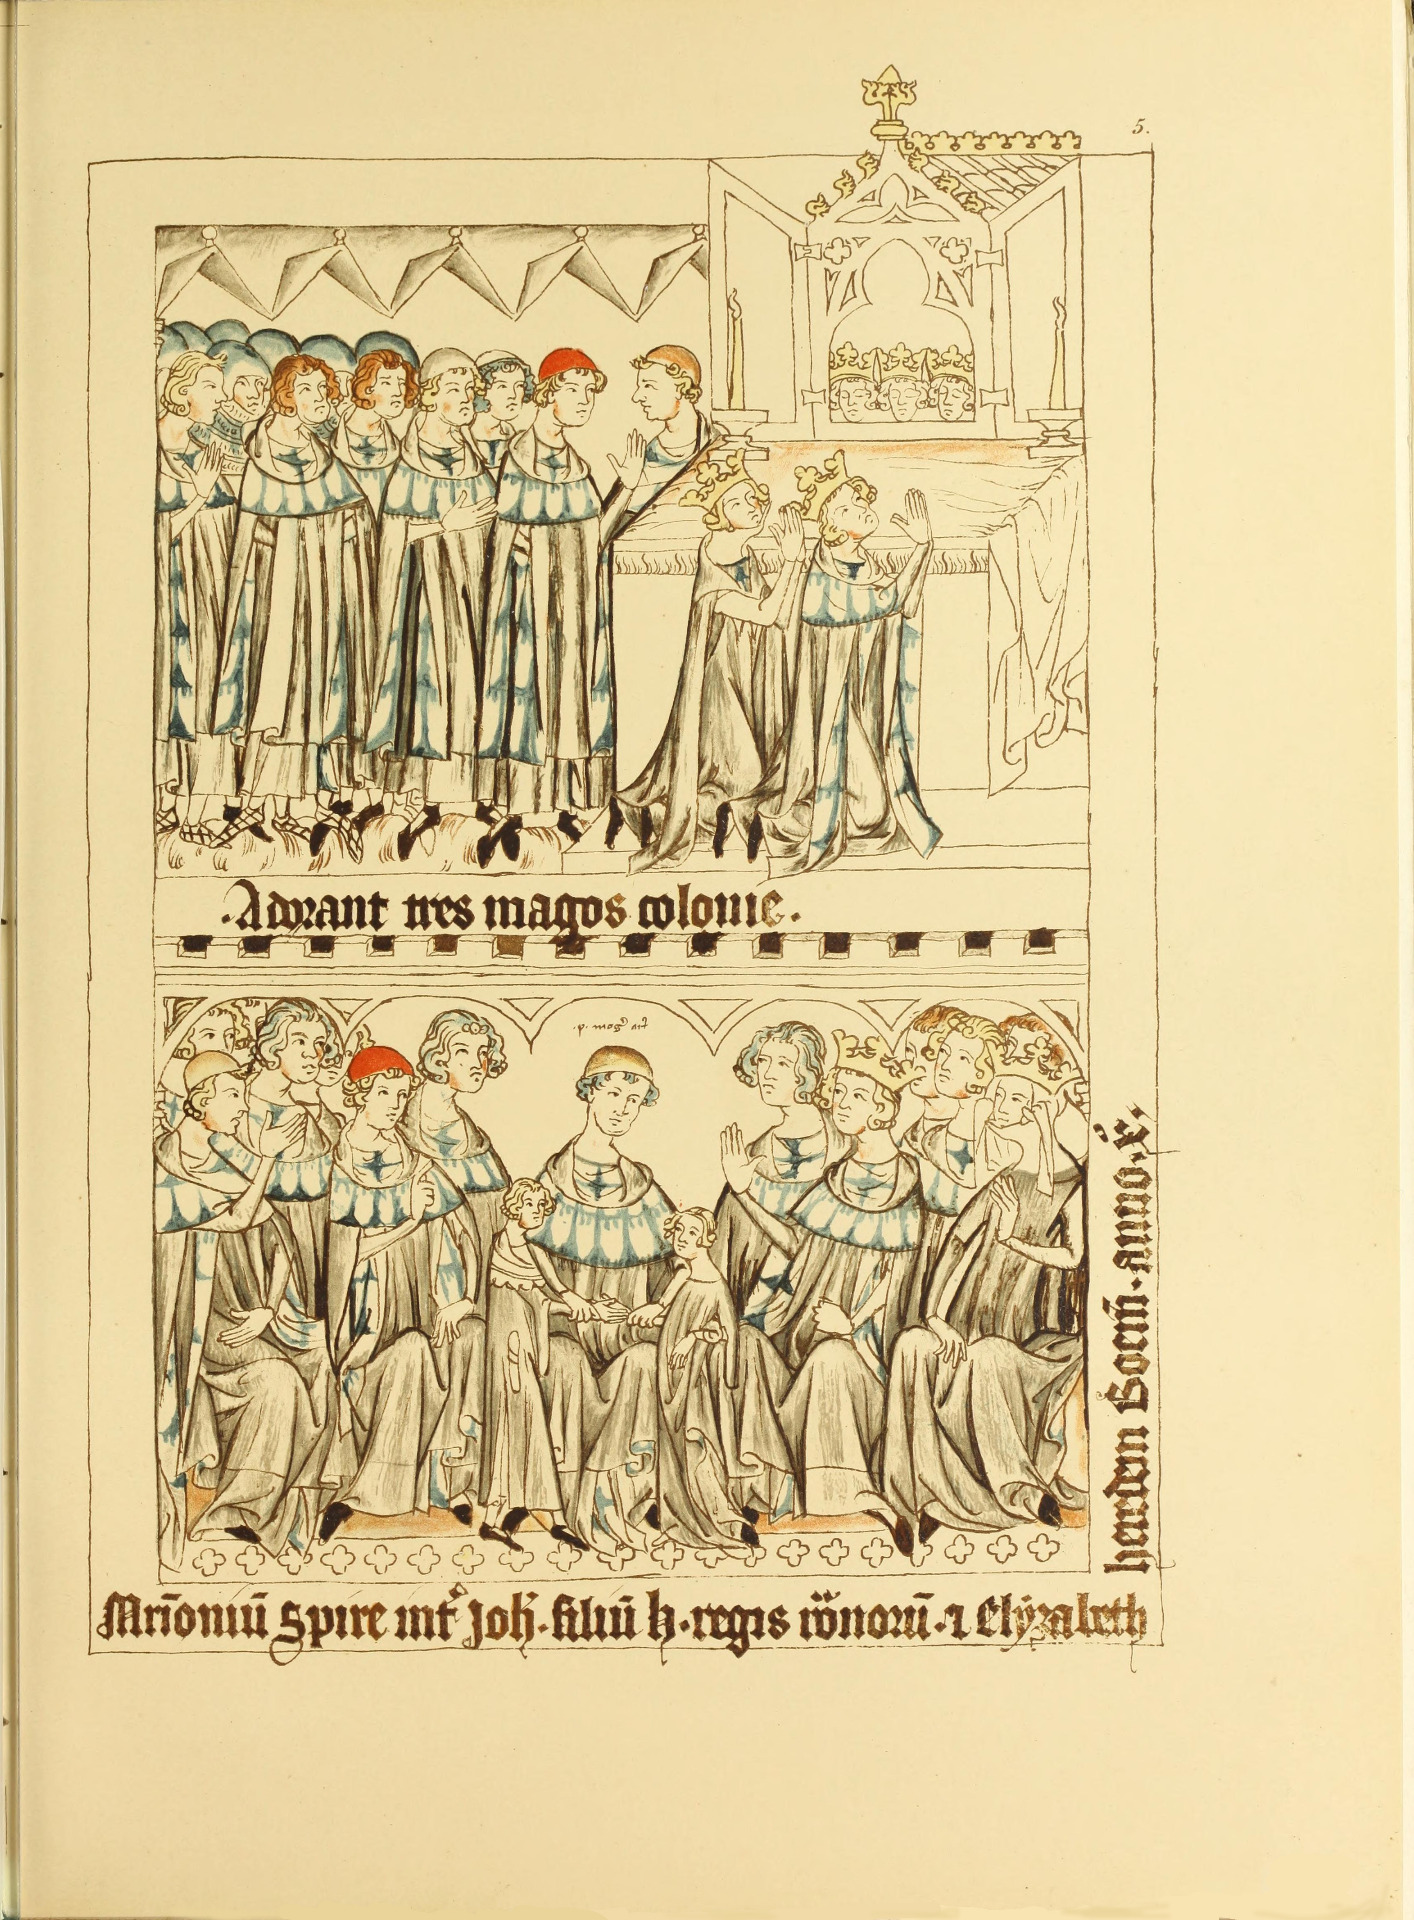 5.
·Adorant tres magos colonie·
·p· mog̃ ar̃
Mr̃ioniũ Spire int̃ Joh̃·filiũ h·regis rõnorũ·⁊ Elyzabeth
heredem Boem̃·anno·x̊·